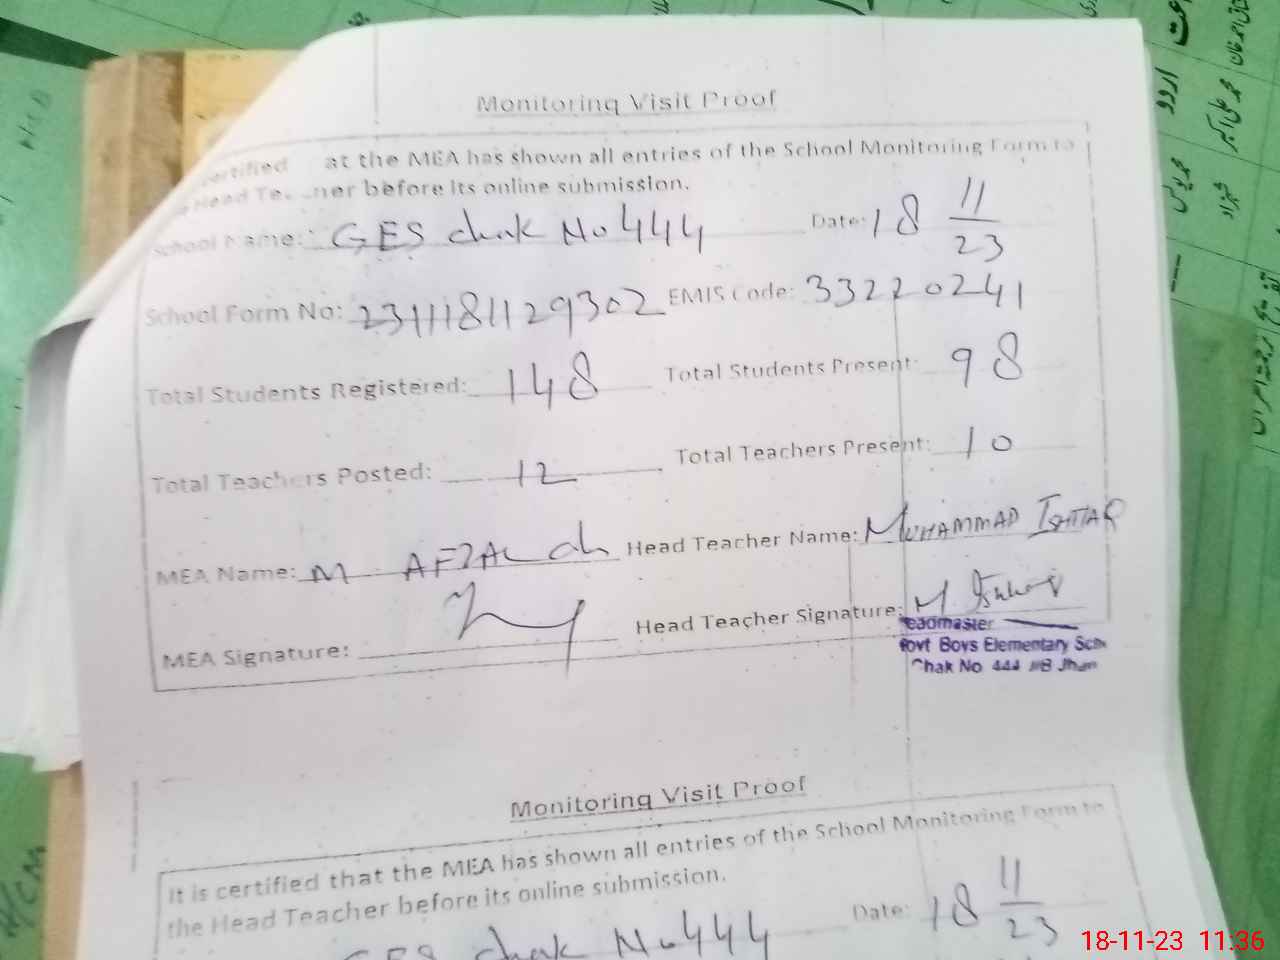 Monitoring Visit Proof
ertified at the MEA has shown all entries of the School Monitoring Form to
Head Te ner before its online submission.
School Name: GES chak No 444 Date: 18 11/23
School Form No: 23111811 29302 EMIS Code: 33220241
Total Students Registered: 148 Total Students Present: 98
Total Teachers Posted: 12 Total Teachers Present: 10
MEA Name: M AFZAL Head Teacher Name: MUHAMMAD ISHTIAQ
MEA Signature: Head Teacher Signature:
eadmaster
ovt Boys Elementary Sch
Chak No 444 JB Jhan
Monitoring Visit Proof
It is certified that the MEA has shown all entries of the School Monitoring Form to
the Head Teacher before its online submission.
GES chak No 444 Date: 18 11/23
اردو
18-11-23 11:36